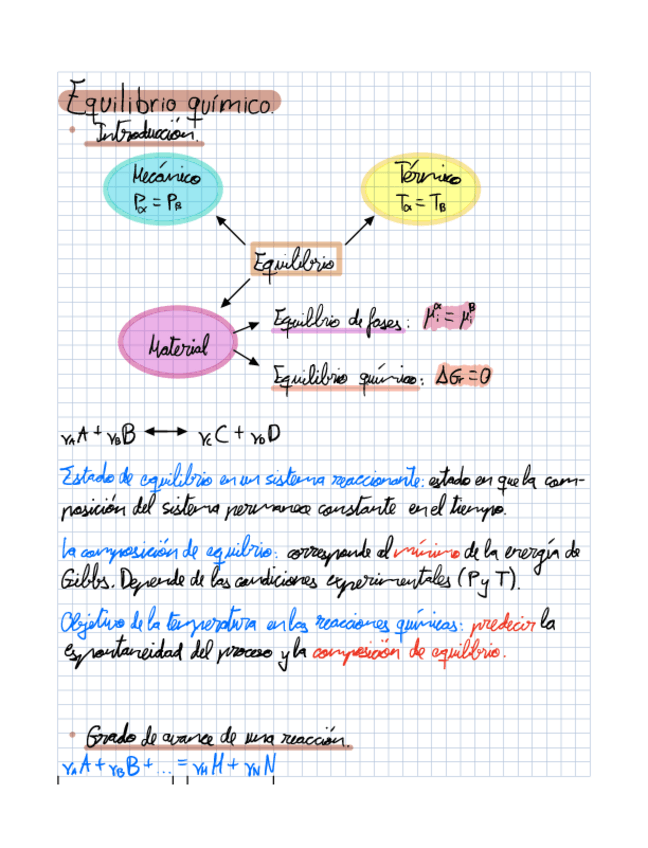 Equilibrio químico.
• Introducción.
Mecánico
Pα = Pβ
Térmico
Tα = Tβ
Equilibrio
Material
Equilbrio de fases: μᵢ^α = μᵢ^β
Equilibrio químico: ΔGr = 0
γA A + γB B ⟷ γC C + γD D
Estado de equilibrio en un sistema reaccionante: estado en que la com-
posición del sistema permanece constante en el tiempo.
La composición de equilbrio: corresponde al mínimo de la energía de
Gibbs. Depende de las condiciones experimentales (P y T).
Objetivo de la temperatura en las reacciones químicas: predecir la
espontaneidad del proceso y la composición de equilibrio.
• Grado de avance de una reacción.
γA A + γB B + ... = γM M + γN N